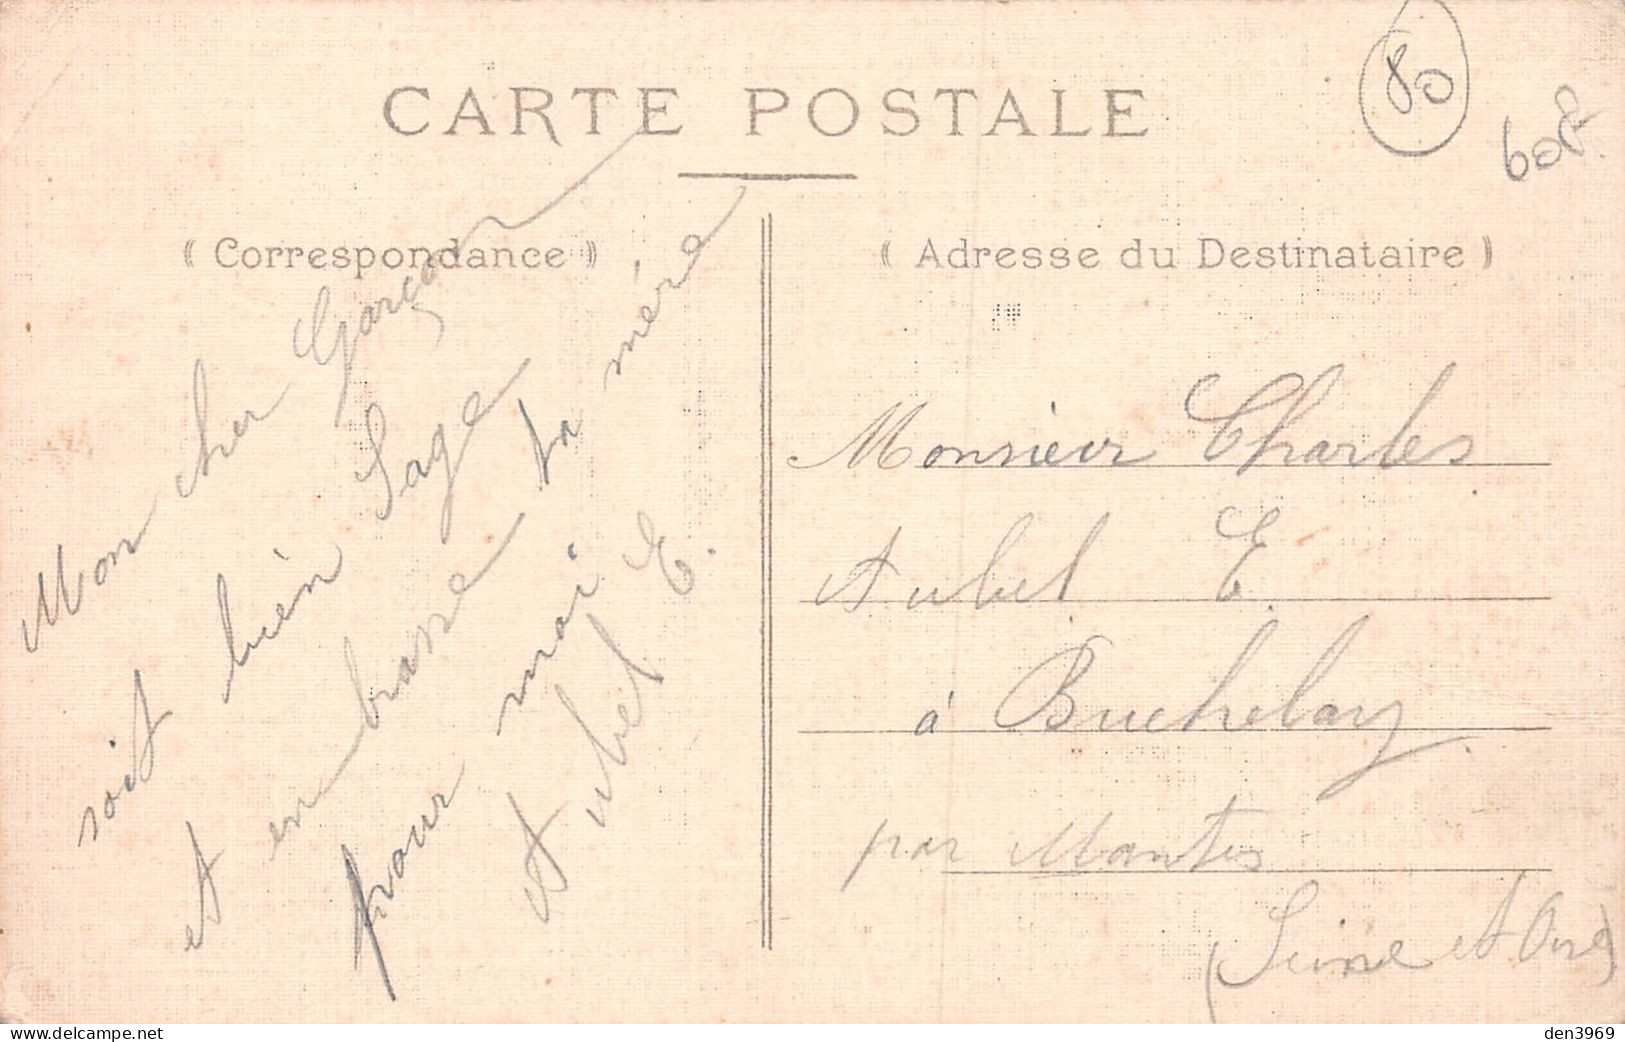 CARTE POSTALE
80
60F
(Correspondance)
Mon cher Garçon
soit bien Sage
et en brasse ta mère
pour moi
Aubel E.
(Adresse du Destinataire)
Monsieur Charles
Aubel E.
à Buchelay
par Mantes
(Seine et Oise)
den3969